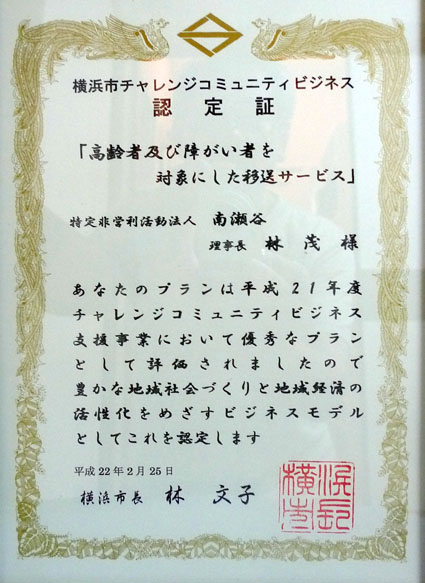 横浜市チャレンジコミュニティビジネス
認定証
「高齢者及び障がい者を
対象にした移送サービス」
特定非営利活動法人 南瀬谷
理事長 林 茂 様
あなたのプランは平成21年度
チャレンジコミュニティビジネス
支援事業において優秀なプラン
として評価されましたので
豊かな地域社会づくりと地域経済の
活性化をめざすビジネスモデル
としてこれを認定します
平成22年2月25日
横浜市長 林 文子